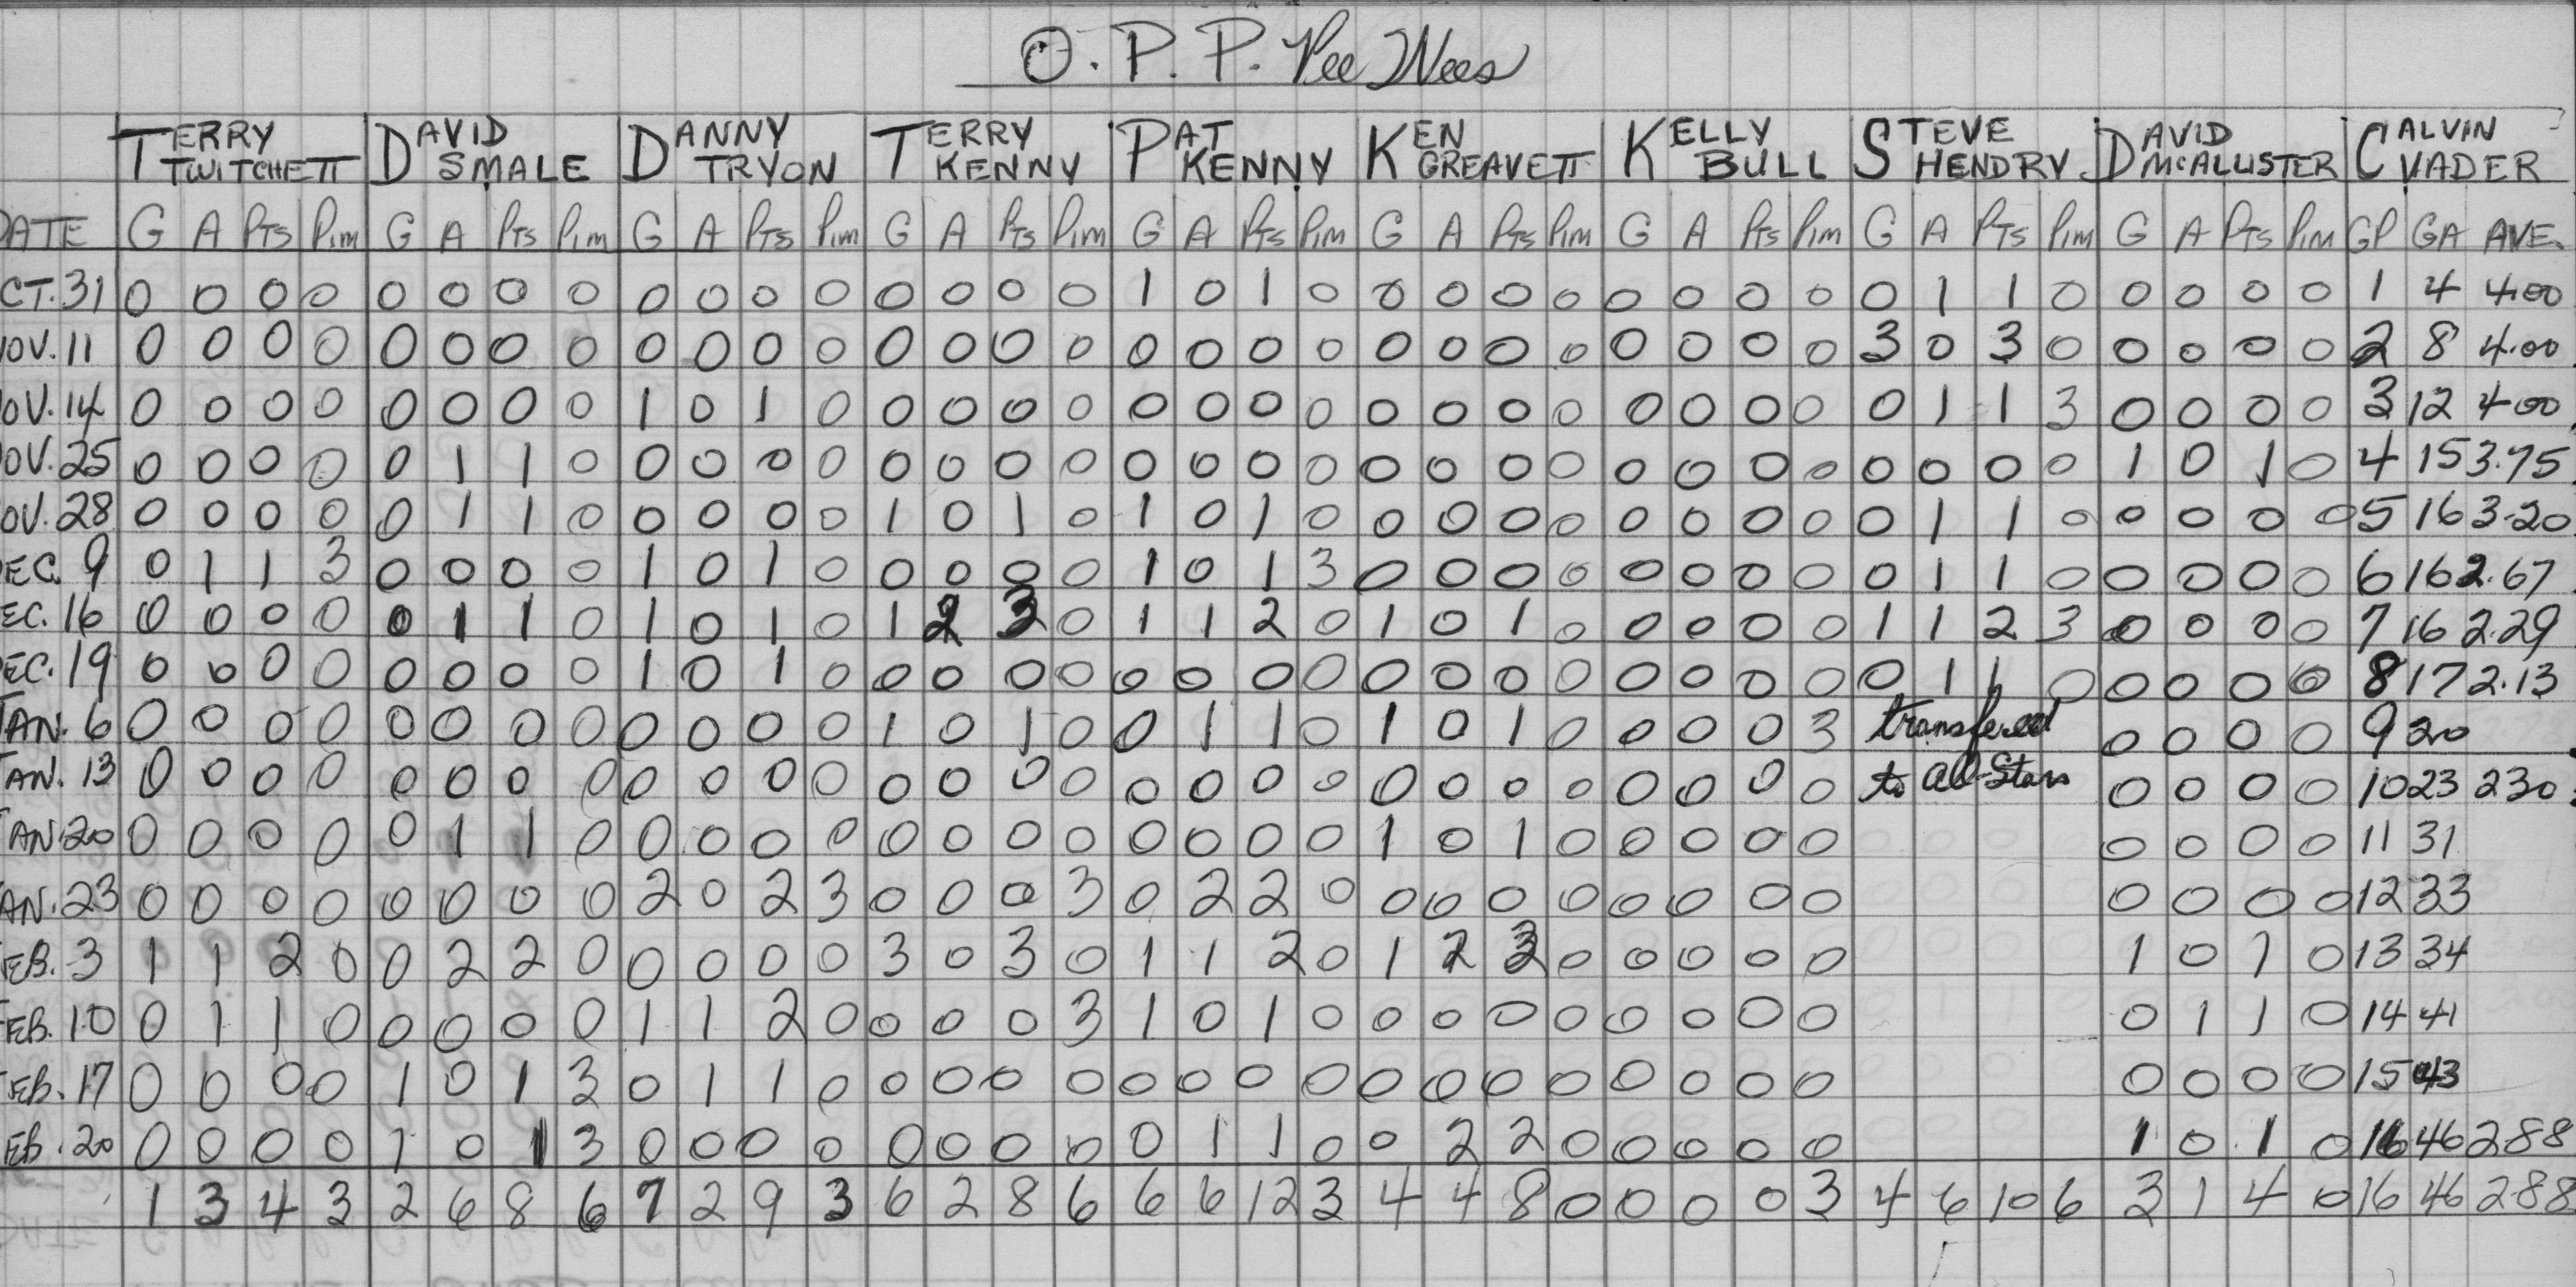 O. P. P. Pee Wees
TERRY TWITCHETT DAVID SMALE DANNY TRYON TERRY KENNY PAT KENNY KEN GREAVETT KELLY BULL STEVE HENDRY DAVID McALLISTER CALVIN VADER
DATE G A PTS Pim G A PTS Pim G A PTS Pim G A PTS Pim G A PTS Pim G A PTS Pim G A PTS Pim G A PTS Pim G A PTS Pim GP GA AVE.
CT. 31 0 0 0 0 0 0 0 0 0 0 0 0 0 0 0 0 1 0 1 0 0 0 0 0 0 0 0 0 0 1 1 0 0 0 0 0 1 4 4.00
OV. 11 0 0 0 0 0 0 0 0 0 0 0 0 0 0 0 0 0 0 0 0 0 0 0 0 0 0 0 0 3 0 3 0 0 0 0 0 2 8 4.00
OV. 14 0 0 0 0 0 0 0 0 1 0 1 0 0 0 0 0 0 0 0 0 0 0 0 0 0 0 0 0 0 1 1 3 0 0 0 0 3 12 4 00
OV. 25 0 0 0 0 0 1 1 0 0 0 0 0 0 0 0 0 0 0 0 0 0 0 0 0 0 0 0 0 0 0 0 0 1 0 1 0 4 15 3.75
OV. 28 0 0 0 0 0 1 1 0 0 0 0 0 1 0 1 0 1 0 1 0 0 0 0 0 0 0 0 0 0 1 1 0 0 0 0 0 5 16 3.20
EC. 9 0 1 1 3 0 0 0 0 1 0 1 0 0 0 0 0 1 0 1 3 0 0 0 0 0 0 0 0 0 1 1 0 0 0 0 0 6 16 2.67
EC. 16 0 0 0 0 0 1 1 0 1 0 1 0 1 2 3 0 1 1 2 0 1 0 1 0 0 0 0 0 1 1 2 3 0 0 0 0 7 16 2.29
EC. 19 0 0 0 0 0 0 0 0 1 0 1 0 0 0 0 0 0 0 0 0 0 0 0 0 0 0 0 0 0 1 1 0 0 0 0 0 8 17 2.13
AN. 6 0 0 0 0 0 0 0 0 0 0 0 0 1 0 1 0 0 1 1 0 1 0 1 0 0 0 0 3 transfered 0 0 0 0 9 20
AN. 13 0 0 0 0 0 0 0 0 0 0 0 0 0 0 0 0 0 0 0 0 0 0 0 0 0 0 0 0 to all-Stars 0 0 0 0 10 23 230
AN. 20 0 0 0 0 0 1 1 0 0 0 0 0 0 0 0 0 0 0 0 0 1 0 1 0 0 0 0 0 0 0 0 0 11 31
AN. 23 0 0 0 0 0 0 0 0 2 0 2 3 0 0 0 3 0 2 2 0 0 0 0 0 0 0 0 0 0 0 0 0 12 33
EB. 3 1 1 2 0 0 2 2 0 0 0 0 0 3 0 3 0 1 1 2 0 1 2 3 0 0 0 0 0 1 0 1 0 13 34
EB. 10 0 1 1 0 0 0 0 0 1 1 2 0 0 0 0 3 1 0 1 0 0 0 0 0 0 0 0 0 0 1 1 0 14 41
EB. 17 0 0 0 0 1 0 1 3 0 1 1 0 0 0 0 0 0 0 0 0 0 0 0 0 0 0 0 0 0 0 0 0 15 43
EB. 20 0 0 0 0 1 0 1 3 0 0 0 0 0 0 0 0 0 1 1 0 0 2 2 0 0 0 0 0 1 0 1 0 16 46 2.88
1 3 4 3 2 6 8 6 7 2 9 3 6 2 8 6 6 6 12 3 4 4 8 0 0 0 0 3 4 6 10 6 3 1 4 0 16 46 2.88